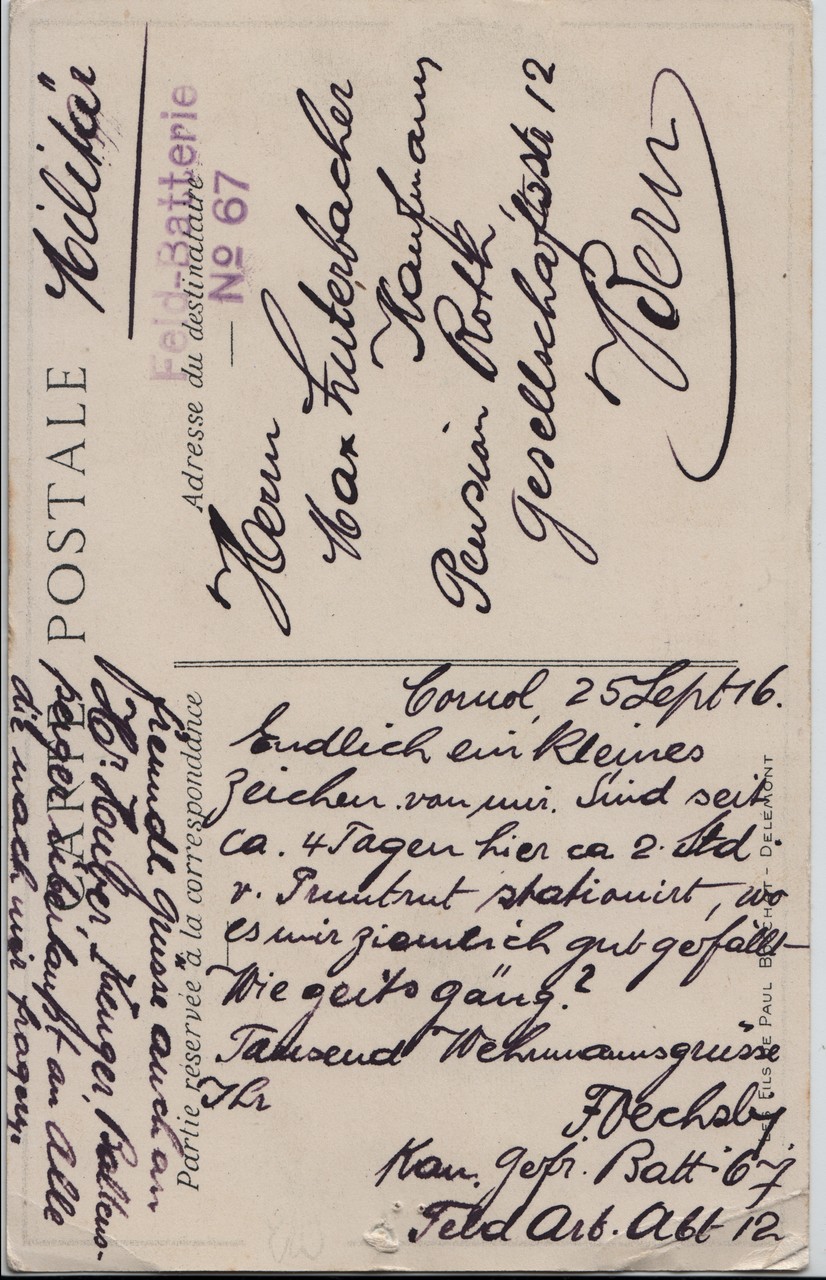 CARTE POSTALE
Militär
Feld-Batterie
No 67
Adresse du destinataire
Herrn
Max Luterbacher
Kaufmann
Pension Roth
Gesellschaftsstr 12
Bern
Partie réservée à la correspondance
Cornol, 25 Sept 16.
Endlich ein kleines
Zeichen von mir. Sind seit
ca. 4 Tagen hier ca 2 Std.
v. Pruntrut stationirt, wo
es mir ziemlich gut gefällt
Wie geits gäng?
Tausend Wehrmannsgrüsse
Ihr
Kan. Gefr. Batt. 67
Feld Art. Abt 12
freundl. Grüsse auch an
Hr. Huber, Wenger,
überhaupt an Alle
die nach mir fragen.
LES FILS DE PAUL - DELÉMONT